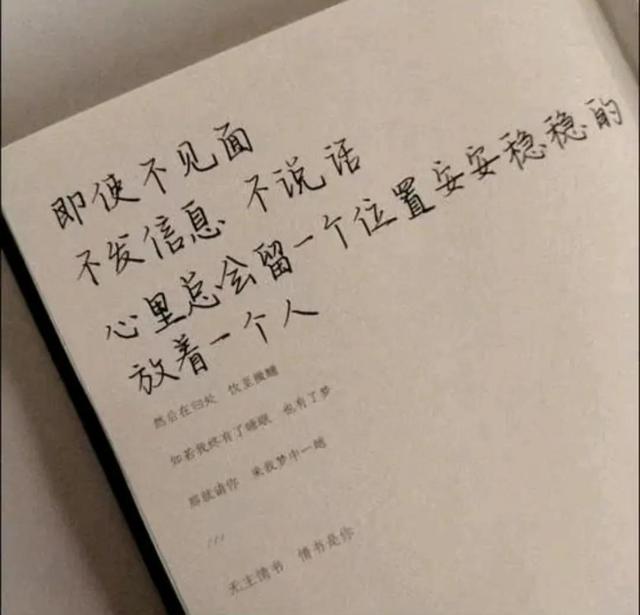 即使不见面
不发信息 不说话
心里总会留一个位置安安稳稳的
放着一个人
然后在归处 饮至微醺
如若我终有了睡眠 也有了梦
那就请你 来我梦中一趟
///
无主情书 情书是你